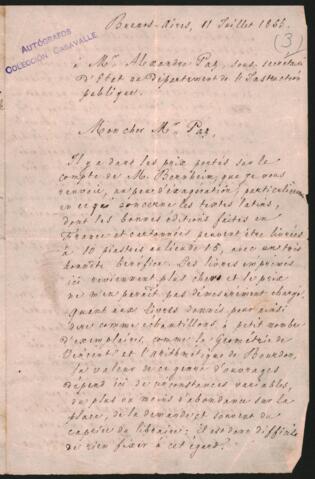 Buenos-Aires, 11 Juillet 1866.
(3)
AUTÓGRAFOS
COLECCIÓN CASAVALLE
à Mr. Alexandre Paz, sous secrétaire
d'Etat du Département de l'Instruction
publique.
Mon cher Mr. Paz,
Il y a dans les prix portés sur le
compte de M. Bernheim, que je vous
renvoie, un peu d'exagération, particulièrement
en ce qui concerne les textes latins,
dont les bonnes éditions faites en
France et cartonnées peuvent être livrées
à 10 piastres au lieu de 15, avec un très
honnête bénéfice. Les livres imprimés
ici reviennent plus chers et le prix
ne m'en paraît pas démesurément chargé,
quant aux livres donnés, pour ainsi
dire comme échantillons, à petit nombre
d'exemplaires, comme la Géométrie de
Vincent et l'arithmétique de Bourdon,
la valeur de ce genre d'ouvrages
dépend ici de circonstances variables,
du plus ou moins d'abondance sur la
place, de la demande, et souvent du
caprice du libraire: il est donc difficile
de rien fixer à cet égard.